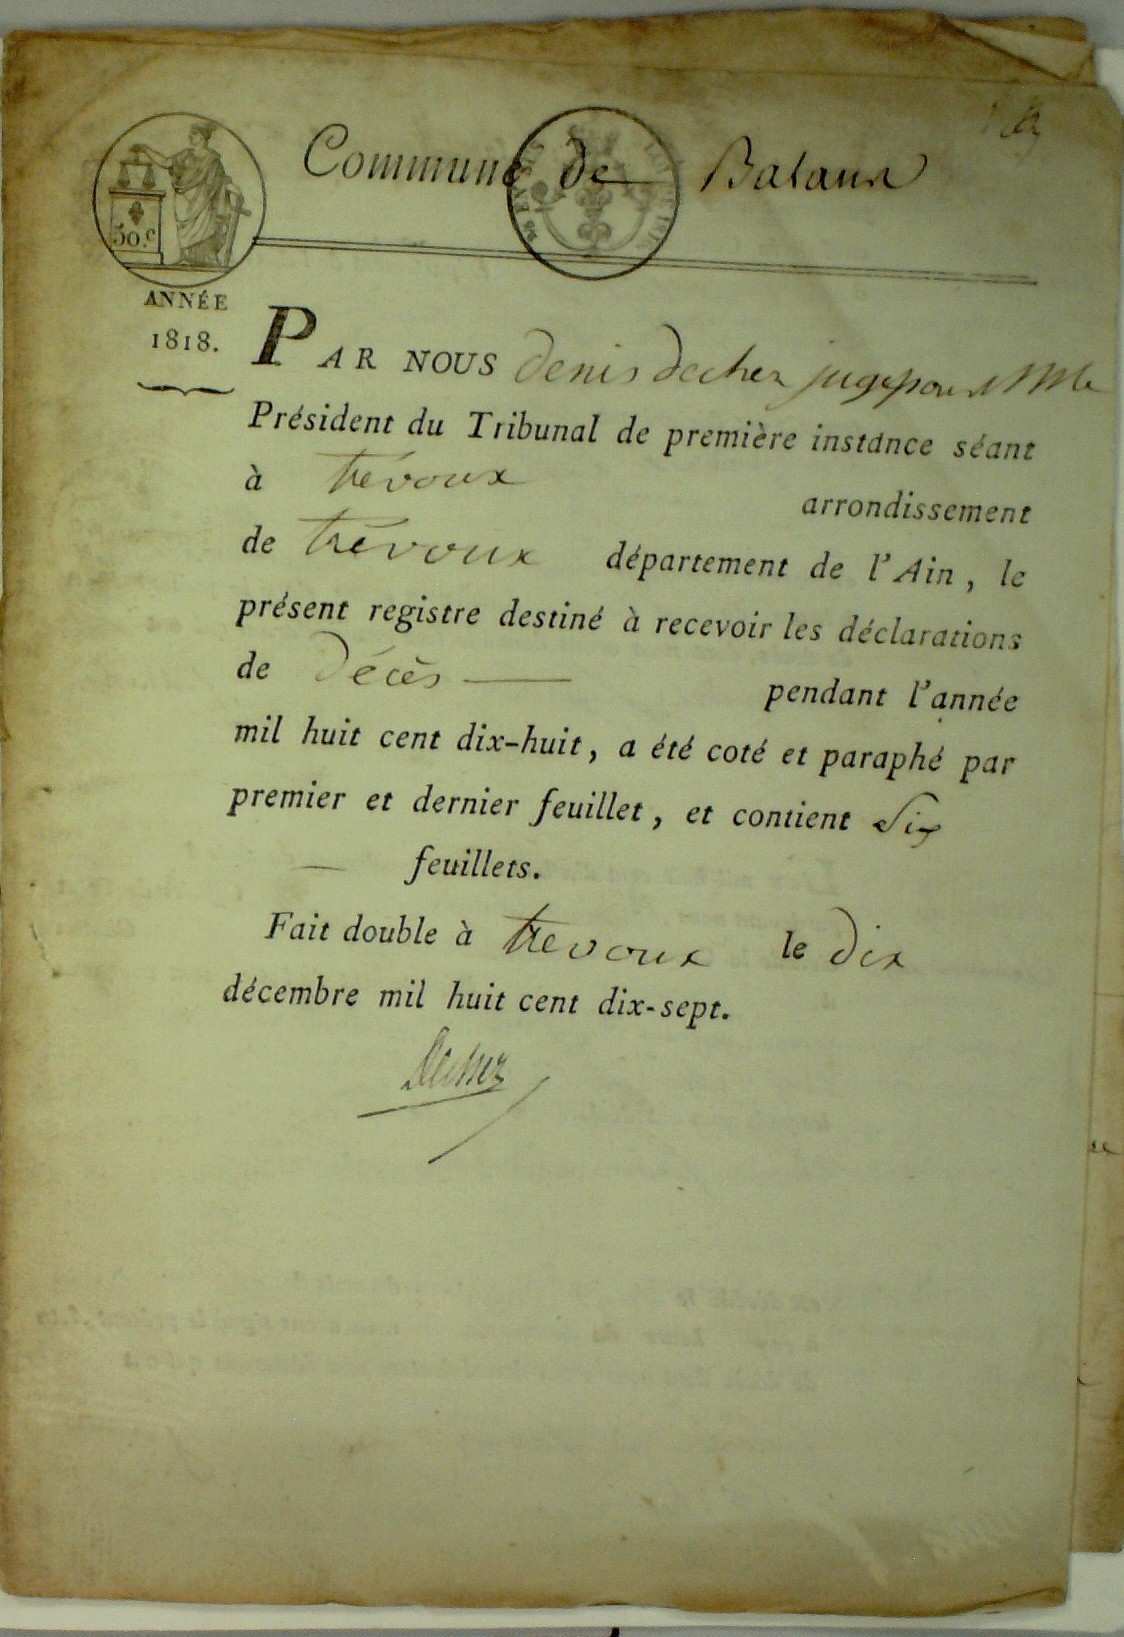 Commune de Balan
50.c
ANNÉE
1818.
PAR NOUS denis juge pour
Président du Tribunal de première instance séant
à trévoux arrondissement
de trévoux département de l'Ain, le
présent registre destiné à recevoir les déclarations
de Décès — pendant l'année
mil huit cent dix-huit, a été coté et paraphé par
premier et dernier feuillet, et contient Six
— feuillets.
Fait double à trevoux le dix
décembre mil huit cent dix-sept.